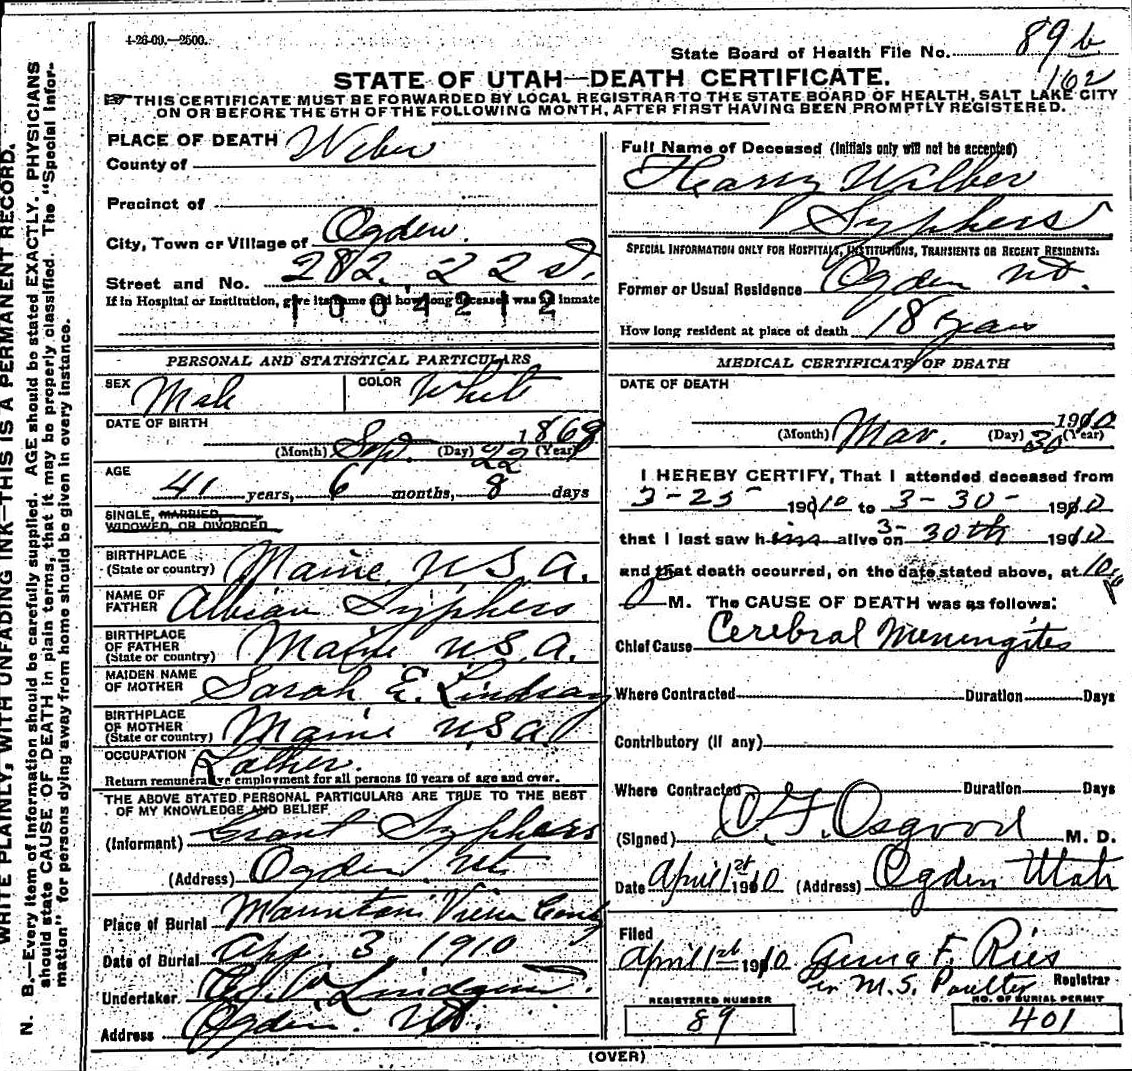 4-26-09.—2500.
State Board of Health File No. 89 b
162
STATE OF UTAH—DEATH CERTIFICATE.
THIS CERTIFICATE MUST BE FORWARDED BY LOCAL REGISTRAR TO THE STATE BOARD OF HEALTH, SALT LAKE CITY
ON OR BEFORE THE 5TH OF THE FOLLOWING MONTH, AFTER FIRST HAVING BEEN PROMPTLY REGISTERED.
PLACE OF DEATH
County of Weber
Precinct of
City, Town or Village of Ogden.
Street and No. 282. 22 st.
If in Hospital or Institution, give its name and how long deceased was an inmate
1004212
Full Name of Deceased (Initials only will not be accepted)
Harry Wilber
Syphers
SPECIAL INFORMATION ONLY FOR HOSPITALS, INSTITUTIONS, TRANSIENTS OR RECENT RESIDENTS:
Former or Usual Residence Ogden Ut.
How long resident at place of death 18 years
PERSONAL AND STATISTICAL PARTICULARS
SEX Male COLOR White
DATE OF BIRTH
(Month) Sep. (Day) 22 1868 (Year)
AGE
41 years, 6 months, 8 days
SINGLE, MARRIED,
WIDOWED, OR DIVORCED
BIRTHPLACE
(State or country) Maine U.S.A.
NAME OF
FATHER Albian Syphers
BIRTHPLACE
OF FATHER
(State or country) Maine U.S.A.
MAIDEN NAME
OF MOTHER Sarah E. Lindsay
BIRTHPLACE
OF MOTHER
(State or country) Maine U.S.A.
OCCUPATION Lather.
Return remunerative employment for all persons 10 years of age and over.
THE ABOVE STATED PERSONAL PARTICULARS ARE TRUE TO THE BEST
OF MY KNOWLEDGE AND BELIEF
(Informant) Grant Syphers
(Address) Ogden Ut.
Place of Burial Mountain View Cemty
Date of Burial Apr 3, 1910
Undertaker Lindquist.
Address Ogden. Ut.
MEDICAL CERTIFICATE OF DEATH
DATE OF DEATH
(Month) Mar. (Day) 30 1910 (Year)
I HEREBY CERTIFY, That I attended deceased from
3-25 1910 to 3-30- 1910
that I last saw him alive on 3-30th 1910
and that death occurred, on the date stated above, at 10
M. The CAUSE OF DEATH was as follows:
Chief Cause Cerebral Meningites
Where Contracted Duration Days
Contributory (if any)
Where Contracted Duration Days
(Signed) Osgood M. D.
Date April 1st 1910 (Address) Ogden Utah
Filed
April 1st 1910 Anna F. Ries
Registrar
per M.S. Poulter
REGISTERED NUMBER
89
NO. OF BURIAL PERMIT
401
(OVER)
WRITE PLAINLY, WITH UNFADING INK—THIS IS A PERMANENT RECORD.
N. B.—Every item of information should be carefully supplied. AGE should be stated EXACTLY. PHYSICIANS
should state CAUSE OF DEATH in plain terms, that it may be properly classified. The "Special Infor-
mation" for persons dying away from home should be given in every instance.